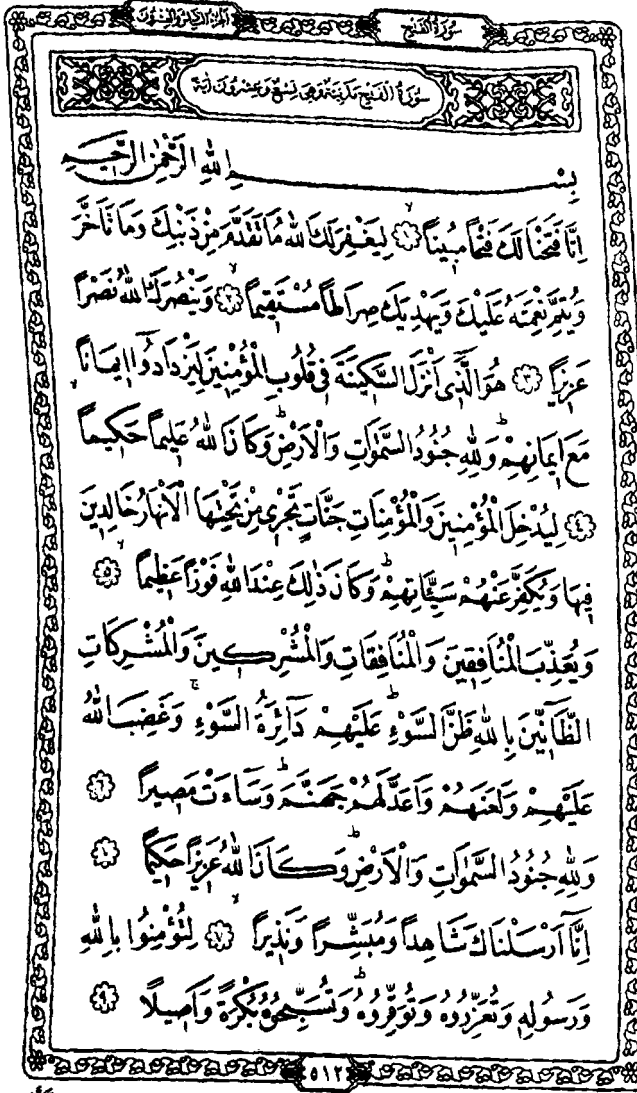 سُورَةُ الْفَتْحِ
الجزء السادس والعشرون
سُورَةُ الْفَتْحِ مَدَنِيَّةٌ وَهِيَ تِسْعٌ وَعِشْرُونَ اٰيَةً
بِسْــــــمِ اللّٰهِ الرَّحْمٰنِ الرَّحِيمِ
اِنَّا فَتَحْنَا لَكَ فَتْحًا مُبِينًاۙ ﴿١﴾ لِيَغْفِرَ لَكَ اللّٰهُ مَا تَقَدَّمَ مِنْ ذَنْبِكَ وَمَا تَاَخَّرَ
وَيُتِمَّ نِعْمَتَهُ عَلَيْكَ وَيَهْدِيَكَ صِرَاطًا مُسْتَقِيمًاۙ ﴿٢﴾ وَيَنْصُرَكَ اللّٰهُ نَصْرًا
عَزِيزًا ﴿٣﴾ هُوَ الَّذِٓى اَنْزَلَ السَّكِينَةَ فِى قُلُوبِ الْمُؤْمِنِينَ لِيَزْدَادُٓوا اِيمَانًا
مَعَ اِيمَانِهِمْۜ وَلِلّٰهِ جُنُودُ السَّمٰوَاتِ وَالْاَرْضِۜ وَكَانَ اللّٰهُ عَلِيمًا حَكِيمًاۙ
﴿٤﴾ لِيُدْخِلَ الْمُؤْمِنِينَ وَالْمُؤْمِنَاتِ جَنَّاتٍ تَجْرِى مِنْ تَحْتِهَا الْاَنْهَارُ خَالِدِينَ
فِيهَا وَيُكَفِّرَ عَنْهُمْ سَيِّـَٔاتِهِمْۜ وَكَانَ ذٰلِكَ عِنْدَ اللّٰهِ فَوْزًا عَظِيمًاۙ ﴿٥﴾
وَيُعَذِّبَ الْمُنَافِقِينَ وَالْمُنَافِقَاتِ وَالْمُشْرِكِينَ وَالْمُشْرِكَاتِ
الظَّٓانِّينَ بِاللّٰهِ ظَنَّ السَّوْءِۜ عَلَيْهِمْ دَٓائِرَةُ السَّوْءِۚ وَغَضِبَ اللّٰهُ
عَلَيْهِمْ وَلَعَنَهُمْ وَاَعَدَّ لَهُمْ جَهَنَّمَۜ وَسَٓاءَتْ مَصِيرًا ﴿٦﴾
وَلِلّٰهِ جُنُودُ السَّمٰوَاتِ وَالْاَرْضِۜ وَكَانَ اللّٰهُ عَزِيزًا حَكِيمًا ﴿٧﴾
اِنَّٓا اَرْسَلْنَاكَ شَاهِدًا وَمُبَشِّرًا وَنَذِيرًاۙ ﴿٨﴾ لِتُؤْمِنُوا بِاللّٰهِ
وَرَسُولِهِ وَتُعَزِّرُوهُ وَتُوَقِّرُوهُۜ وَتُسَبِّحُوهُ بُكْرَةً وَاَصِيلًا ﴿٩﴾
٥١٢